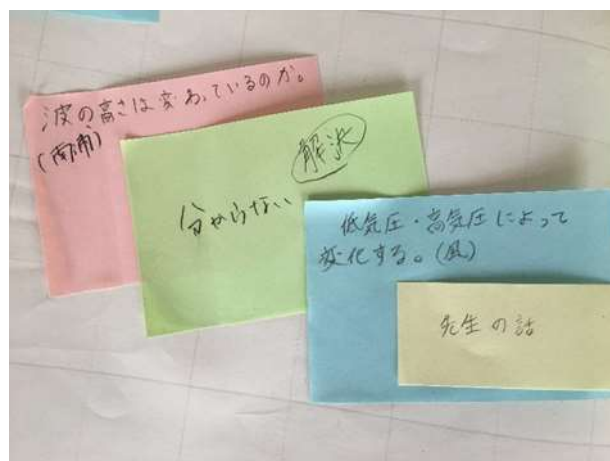 波の高さは変わっているのか。
解決
分からない
低気圧・高気圧によって
変化する。(風)
先生の話